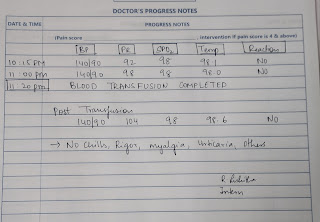 DOCTOR'S PROGRESS NOTES
DATE & TIME PROGRESS NOTES
(Pain score , Intervention if pain score is 4 & above)
BP PR SPO2 Temp Reaction
10:15 PM 140/90 92 98 98.1 NO
11:00 pm 140/90 98 98 98.0 NO
11:20 pm BLOOD TRANSFUSION COMPLETED
Post Transfusion
140/90 104 98 98.6 NO
→ No Chills, Rigor, myalgia, Urticaria, Others
Intern